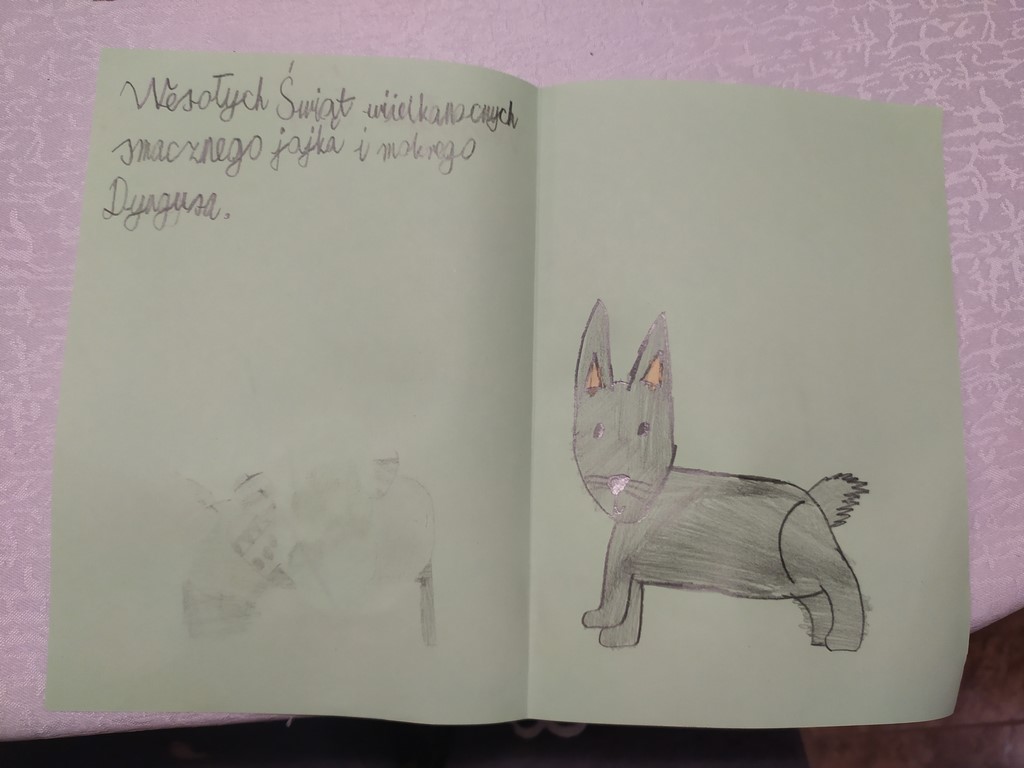 Wesołych Świąt wiielkanocnych
smacznego jajka i mokrego
Dyngusa.